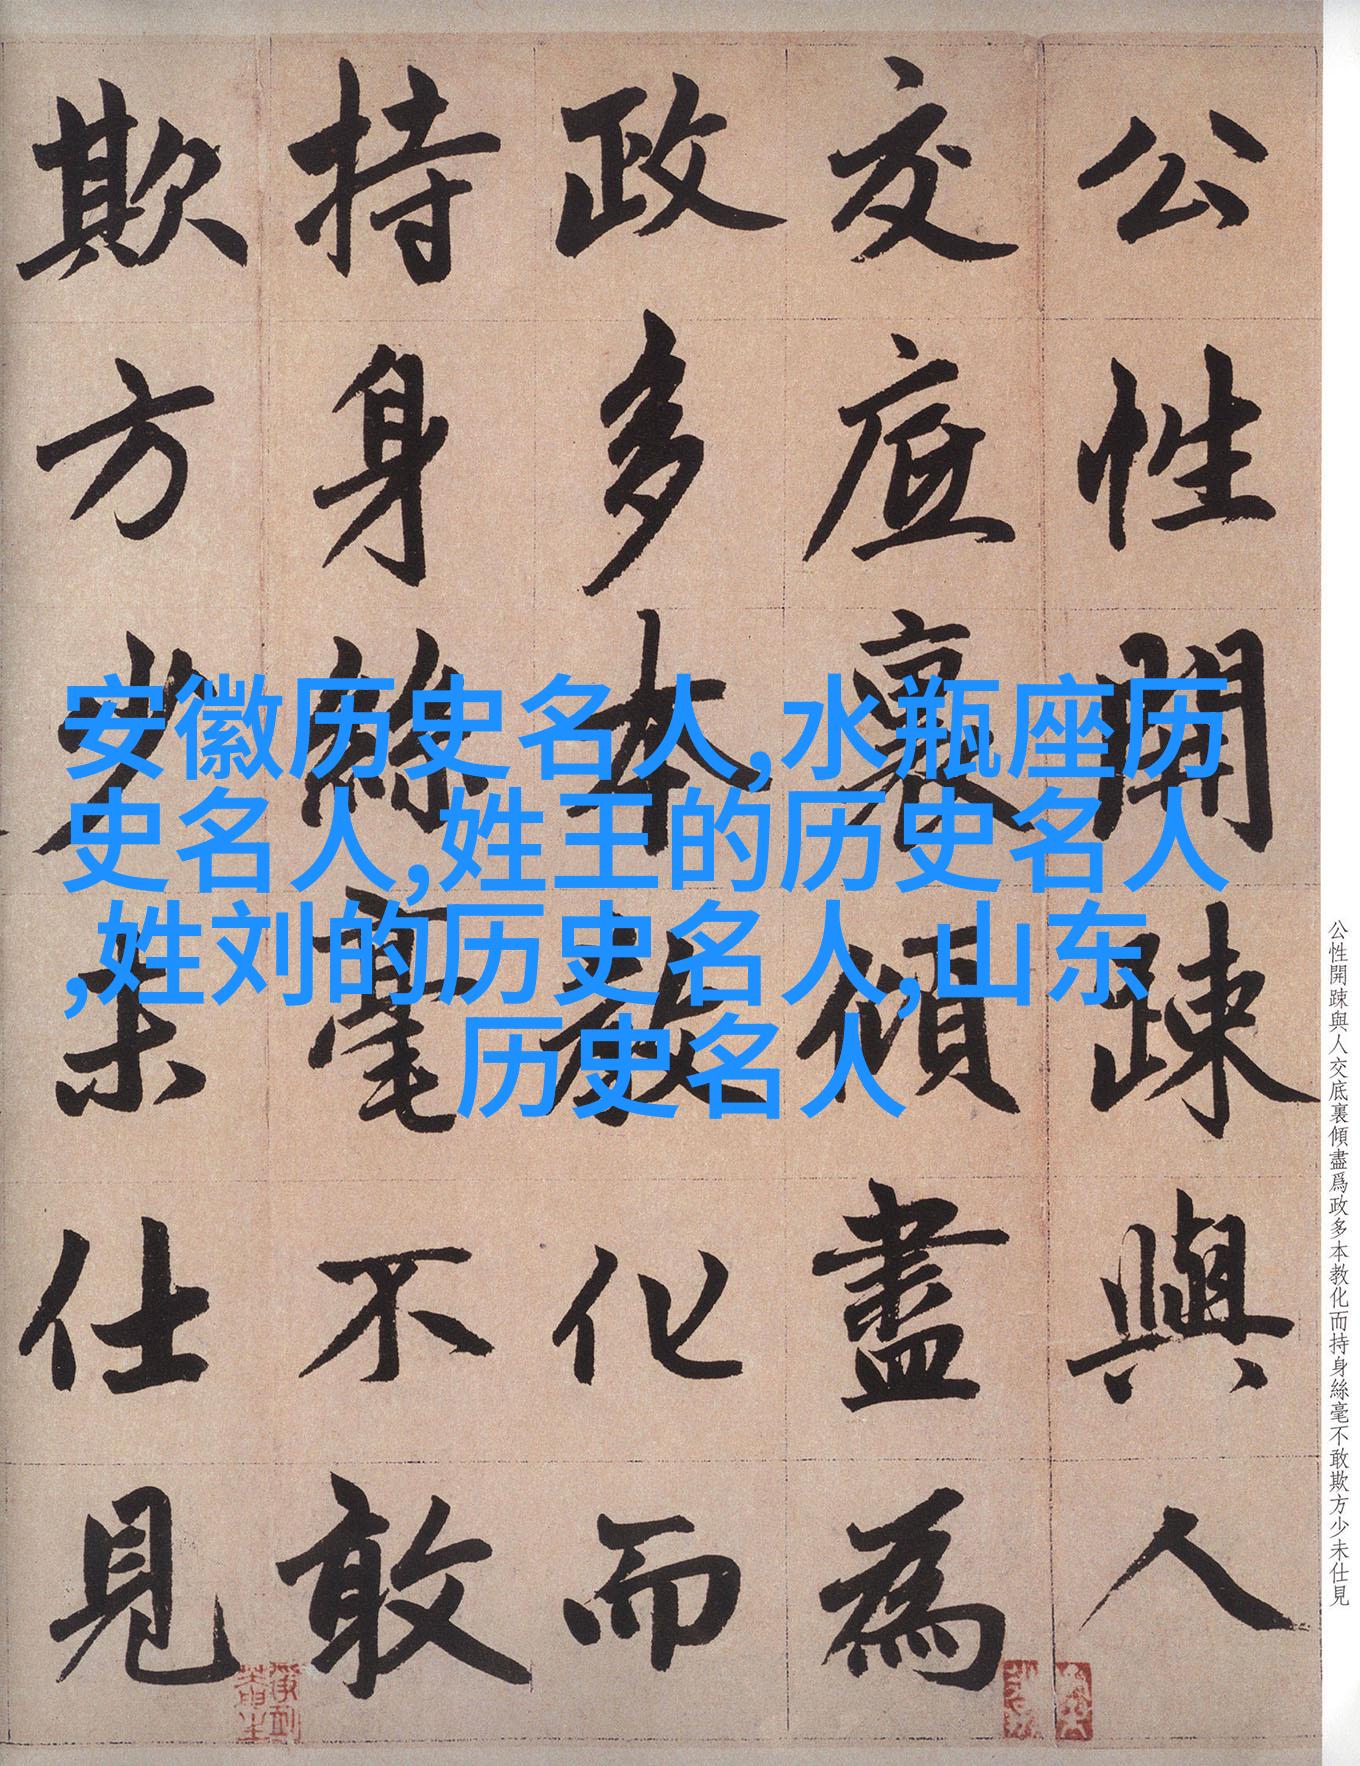 公性開踈與人
交底裏傾盡為
政多本教化而
持身絲毫不敢
欺方少未仕見
安徽历史名人,水瓶座历
史名人,姓王的历史名人
,姓刘的历史名人,山东
历史名人
公性開踈與人交底裏傾盡爲政多本教化而持身絲毫不敢欺方少未仕見